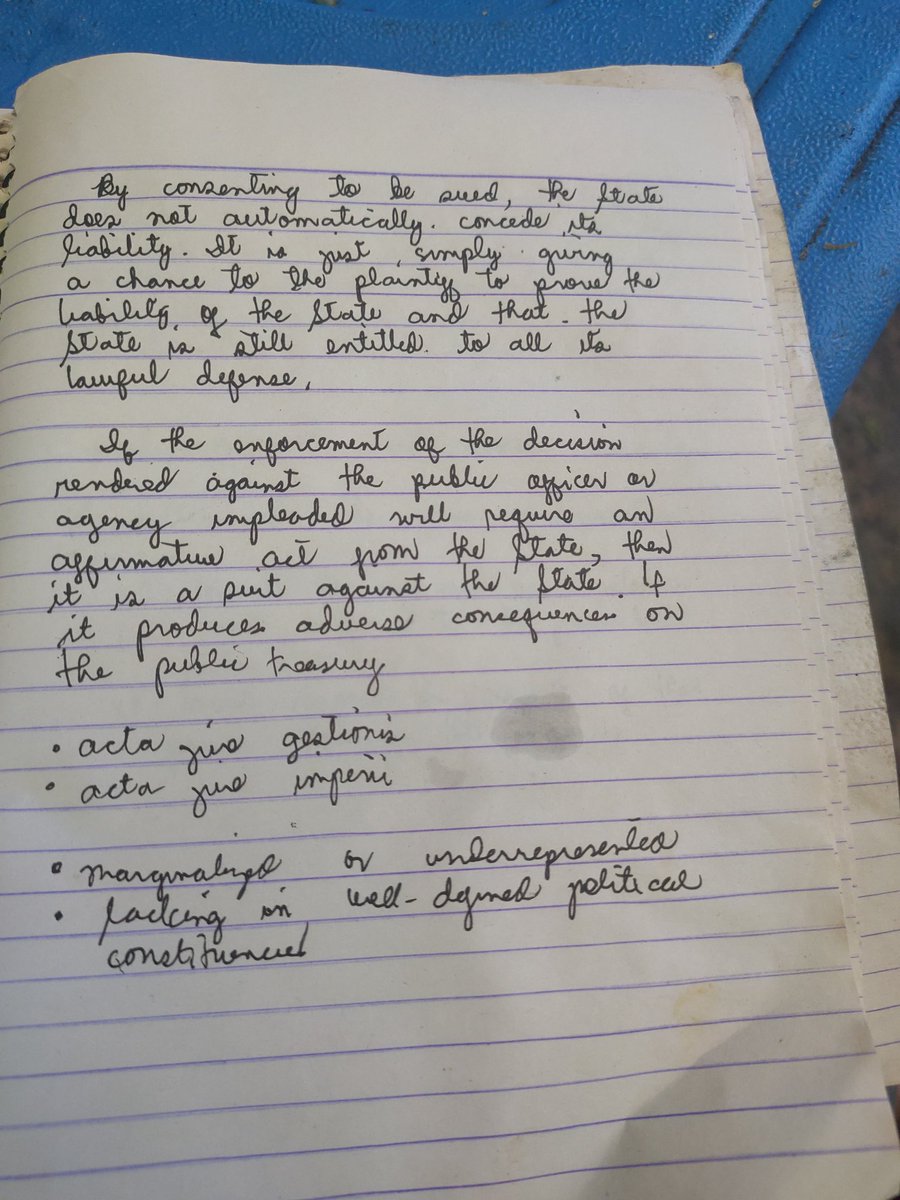 By consenting to be sued, the State
does not automatically concede its
liability. It is just, simply giving
a chance to the plaintiff to prove the
liability of the State and that the
State is still entitled to all its
lawful defense.
If the enforcement of the decision
rendered against the public officer or
agency impleaded will require an
affirmative act from the State, then
it is a suit against the State. If
it produces adverse consequences on
the public treasury
• acta jure gestionis
• acta jure imperii
• marginalized or underrepresented
• lacking in well-defined political
constituencies